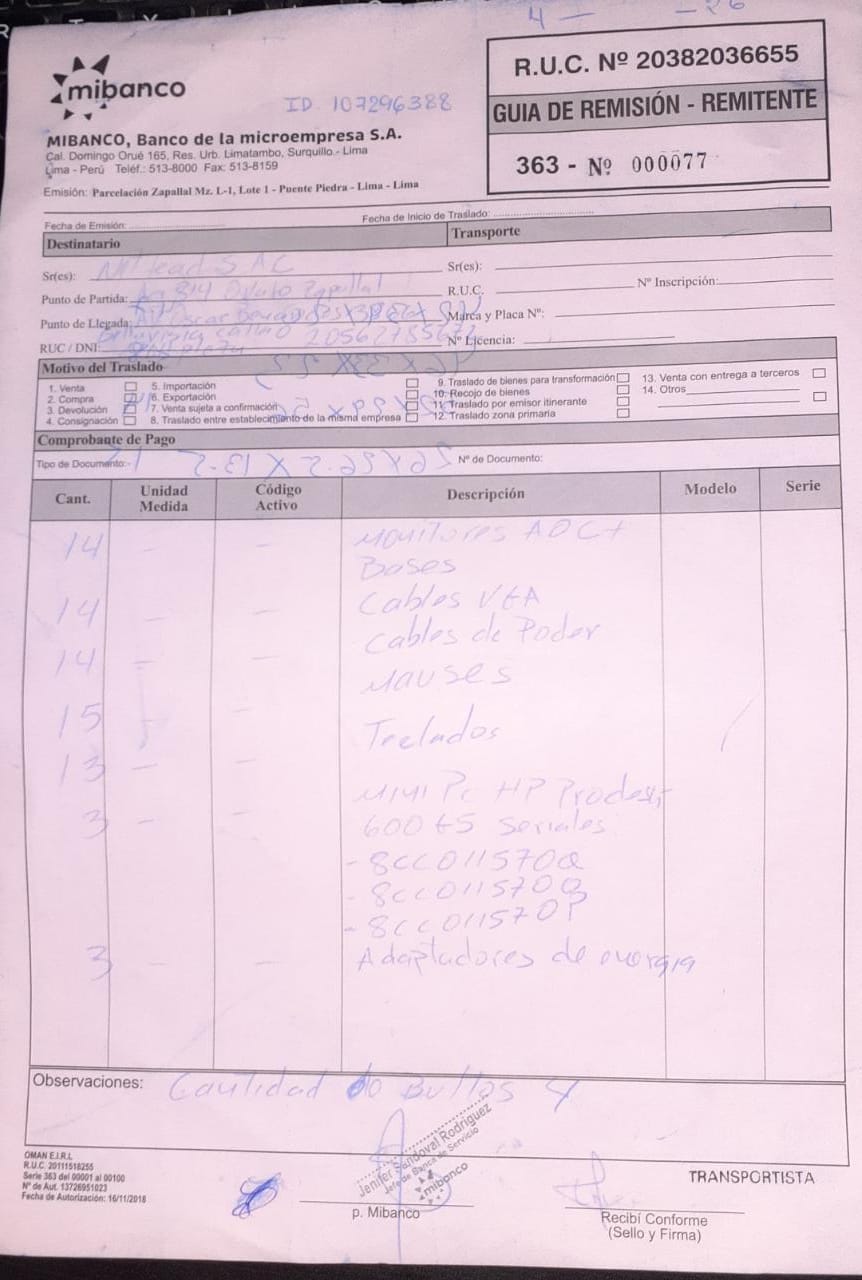 mibanco
ID 107296388
MIBANCO, Banco de la microempresa S.A.
Cal. Domingo Orué 165, Res. Urb. Limatambo, Surquillo - Lima
Lima - Perú Teléf.: 513-8000 Fax: 513-8159
Emisión: Parcelación Zapallal Mz. L-1, Lote 1 - Puente Piedra - Lima - Lima
R.U.C. Nº 20382036655
GUIA DE REMISIÓN - REMITENTE
363 - Nº 000077
Fecha de Emisión:
Fecha de Inicio de Traslado:
Destinatario
Transporte
Sr(es): SAC
Punto de Partida: Ag 814 Zapallal
Punto de Llegada: Av Oscar
RUC / DNI:
Sr(es):
R.U.C. Nº Inscripción:
Marca y Placa Nº:
Nº Licencia:
Motivo del Traslado
1. Venta
2. Compra
3. Devolución
4. Consignación
5. Importación
6. Exportación
7. Venta sujeta a confirmación
8. Traslado entre establecimiento de la misma empresa
9. Traslado de bienes para transformación
10. Recojo de bienes
11. Traslado por emisor itinerante
12. Traslado zona primaria
13. Venta con entrega a terceros
14. Otros
Comprobante de Pago
Tipo de Documento: Nº de Documento:
Cant. Unidad Medida Código Activo Descripción Modelo Serie
14 - - Monitores AOC +
Bases
14 - - Cables VGA
Cables de Poder
14 - - Mauses
15 - - Teclados
13 - -
Mini Pc HP Prodesk
3 - 600 G5 Seriales
- 8CC011570Q
- 8CC011570B
- 8CC011570P
3 - - Adaptadores de energia
Observaciones: Cantidad de Bultos 4
OMAN E.I.R.L
R.U.C. 20111518255
Serie 363 del 00001 al 00100
Nº de Aut. 13726951023
Fecha de Autorización: 16/11/2018
Jenifer Sandoval Rodriguez
Jefe de Banca de Servicio
mibanco
p. Mibanco
TRANSPORTISTA
Recibí Conforme
(Sello y Firma)